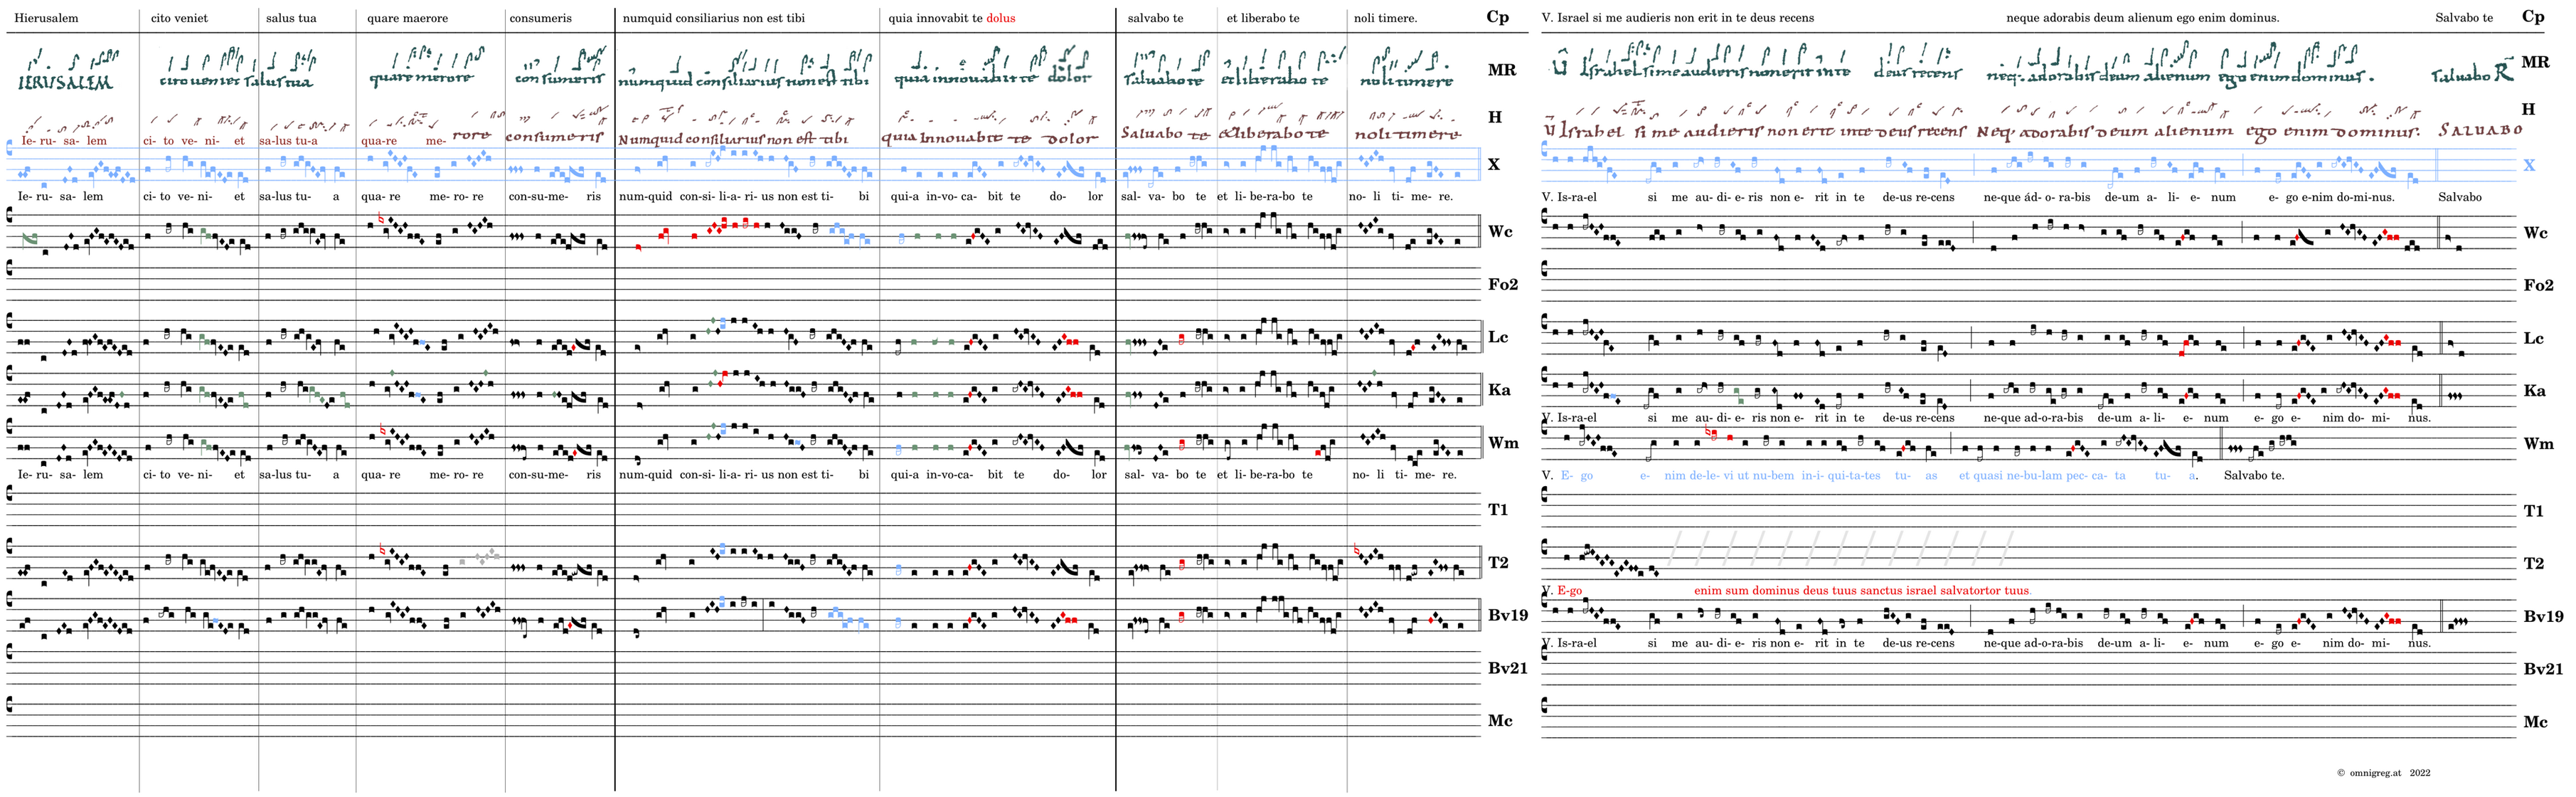 Hierusalem cito veniet salus tua quare maerore consumeris numquid consiliarius non est tibi quia innovabit te dolus salvabo te et liberabo te noli timere. Cp V. Israel si me audieris non erit in te deus recens neque adorabis deum alienum ego enim dominus. Salvabo te Cp
IERUSALEM cito veniet salus tua quare merore consumeris numquid consiliarius non est tibi quia innovabit te dolor salvabo te et liberabo te noli timere MR V Israhel si me audieris non erit in te deus recens neq; adorabis deum alienum ego enim dominus. Saluabo R MR
H H
Ie- ru- sa- lem ci- to ve- ni- et sa-lus tu-a qua-re me- rore consumeris Numquid consiliarius non est tibi quia Innovabit te dolor Saluabo te & liberabo te noli timere V Israhel si me audieris non erit inte deus recens Neq; adorabis deum alienum ego enim dominus. SALUABO
X X
Ie- ru- sa- lem ci- to ve- ni- et sa-lus tu- a qua- re me- ro- re con-su-me- ris num-quid con-si- li-a- ri- us non est ti- bi qui-a in-vo-ca- bit te do- lor sal- va- bo te et li- be-ra-bo te no- li ti- me- re. V. Is-ra-el si me au- di- e- ris non e- rit in te de-us re-cens ne-que ád- o- ra-bis de-um a- li- e- num e- go e-nim do-mi-nus. Salvabo
Wc Wc
Fo2 Fo2
Lc Lc
Ka Ka
V. Is-ra-el si me au- di- e- ris non e- rit in te de-us re-cens ne-que ad-o-ra-bis de-um a- li- e- num e- go e- nim do- mi- nus.
Wm Wm
Ie- ru- sa- lem ci- to ve- ni- et sa-lus tu- a qua- re me- ro- re con-su-me- ris num-quid con-si- li-a- ri- us non est ti- bi qui-a in-vo-ca- bit te do- lor sal- va- bo te et li- be-ra-bo te no- li ti- me- re. V. E- go e- nim de-le- vi ut nu-bem in-i- qui-ta-tes tu- as et quasi ne-bu-lam pec- ca- ta tu- a. Salvabo te.
T1 T1
T2 T2
V. E-go enim sum dominus deus tuus sanctus israel salvatortor tuus.
Bv19 Bv19
V. Is-ra-el si me au- di- e- ris non e- rit in te de-us re-cens ne-que ad-o-ra-bis de-um a- li- e- num e- go e- nim do- mi- nus.
Bv21 Bv21
Mc Mc
© omnigreg.at 2022